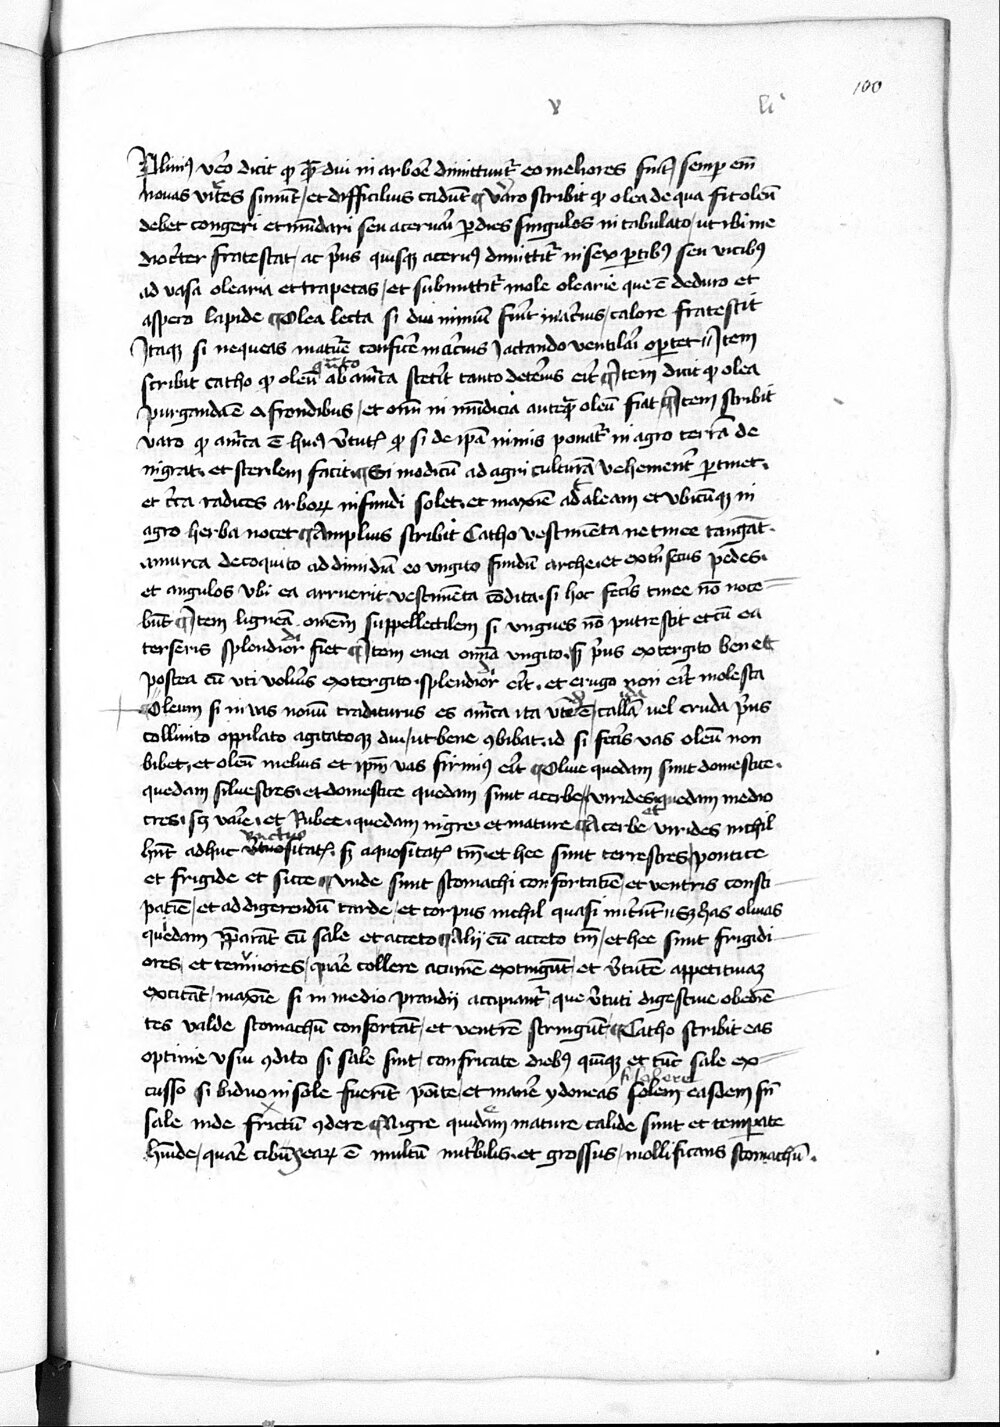 100
v li
Plini9 v̄o dicit ꝙ q̄ diu in arboē dimittunt᷑ eo meliores sūt semp em̄
novas vires sumūt / et difficilius cadūt ¶ varo scribit ꝙ olea de qua fit oleū
debet congeri et mūdari seu aceruari p dies singulos in tabulato / ut ibi me
diocr̄ter fratescat / ac p̄us quisq3 aceru9 dimittit᷑ in sex ptib9 seu vicib9
ad vasa olearia et trapetas / et submittit᷑ mole olearie que ē de duro et
aspero lapide ¶ Olea lecta si diu nimiū fūit in acruis / calore fratescit
Itaq3 si nequeas mature conficē in acruis Iactando ventilari oportet // Item
scribit catho ꝙ oleū q̄nto ab amr̄ca stetit tanto deterius erit ¶ Item dicit ꝙ olea
purganda ē a frondibus / et omī in mūdicia anteq̄ oleū fiat ¶ Item scribit
varo ꝙ amr̄ca ē hui9 v̄tut᷑ ꝙ si de ip̄a nimis ponat᷑ in agro terrā de
nigrat. et sterilem facit. ¶ Si modicū ad agri culturā vehement᷑ ptinet.
et cr̄ca radices arboꝝ infundi solet. et maxīe ad aleam et vbicūq3 in
agro herba nocet ¶ Amplius scribit Catho vestimēta ne tinee tangāt.
amurca decoquito ad dimidiā eo ungito fundū arche. et extrīsecus pedes.
et angulos vbi ea arruerit. vestimēta cōdita. si hoc fecīs tinee nō noce
būt ¶ Item ligneā. omēm suppellectilem si ungues nō putrescit et cū ea
terseris splendidior fiet ¶ Item enea omīa ungito. s3 p̄us extergito bene et
postea cū vti voluis extergito. splendidior erit. et erugo non erit molesta
Oleum si in vas nouū traditurus es amr̄ca ita vt callida vel cruda p̄us
collinito oppilato agitatoq3 diu / ut bene ꝯbibat. id si fecīs vas oleū non
bibet. et oleū melius et ip̄m vas firmi9 erit ¶ Oliue quedam sunt domestice.
quedam siluestres. et domestice quedam sunt acerbe / virides. quedam medio
cres. s3 varie. et Rubee. quedam nigre. et mature ¶ Acerbe et virides nichil
hn̄t adhuc vnctuositat᷑. s3 aquositat᷑ tm̄. et hee sunt terrestres / pontice
et frigide et sicce ¶ vnde sunt stomachi confortatiē / et ventris consti
patiē / et ad digerendū tarde / et corpus nichil quasi nutriūt // s3 has oliuas
quidam p̄parāt cū sale et acceto ¶ Alij cū acceto tm̄ / et hee sunt frigidi
ores / et tenuiores / quare collere acumē extingūt / et v̄tutē appetitiuā
excitāt / maxīe si in medio prandij accipiant᷑ / que v̄tuti digestiue obediē
tes valde stomachū confortāt / et ventrē stringūt. ¶ Catho scribit eas
optime vsui ꝯdito si sale sint / confricate dieb9 quīq3 et tūc sale ex
cusso si biduo in sole fuerit posite / et manēt ydoneas solem easdem sn̄
sale inde frictū ꝯdere ¶ Nigre quidem mature calide sunt et temperate
humide / quare cibus eaꝝ ē multū nutribilis. et grossus / mollificans stomachū.